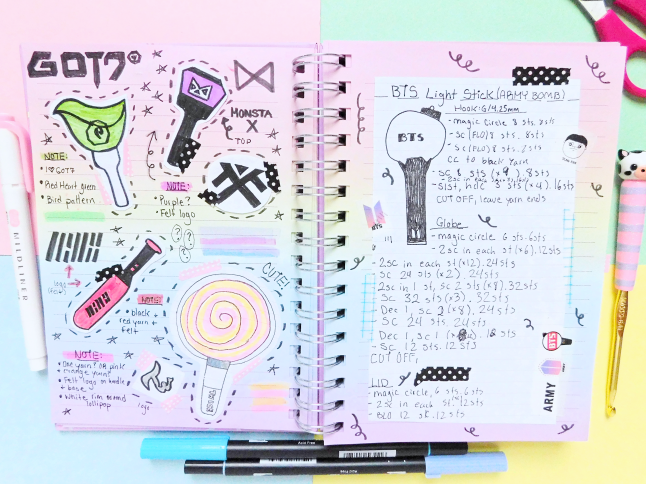 GOT7
MONSTA
X
TOP
NOTE:
• I ♡ GOT7
• Red Heart green
• Bird pattern
NOTE:
• Purple?
• Felt logo
CUTE!
NOTE:
• black +
red yarn +
felt
logo
NOTE:
• One yarn? OR pink
+ orange yarn?
• Felt logo on handle
+ base
• White rim around
lollipop
logo
MILDLINER
BTS Light Stick (ARMY BOMB)
Hook: G/4.25mm
- magic circle 8 sts. 8sts
- sc (FLO) 8 sts. 8sts
- sc (BLO) 8 sts.
CC to black yarn
- sc 8 sts (x9). 8sts
- Slst, hdc 3 sts (x4). 16sts
CUT OFF, leave yarn ends
BTS
BTS
Globe
- magic circle 6 sts. 6sts
- 2sc in each st (x6). 12sts
2sc in each st (x12). 24sts
SC 24 sts (x2). 24sts
2sc in 1 st, sc 2 sts (x8). 32sts
SC 32 sts (x3). 32sts
Dec 1, sc 2 (x8). 24sts
SC 24 sts. 24sts
Dec 1, sc 1
SC 12 sts. 12sts
CUT OFF,
BTS
ARMY
LID
- magic circle, 6 sts. 6sts
- 2sc in each st. 12sts
- BLO 12 st. 12sts